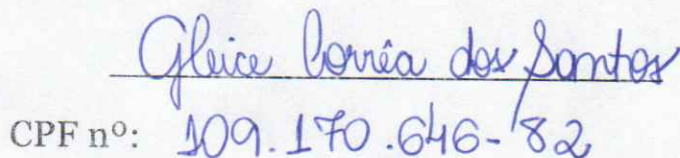 Gleice Corrêa dos Santos
CPF nº: 109.170.646-82